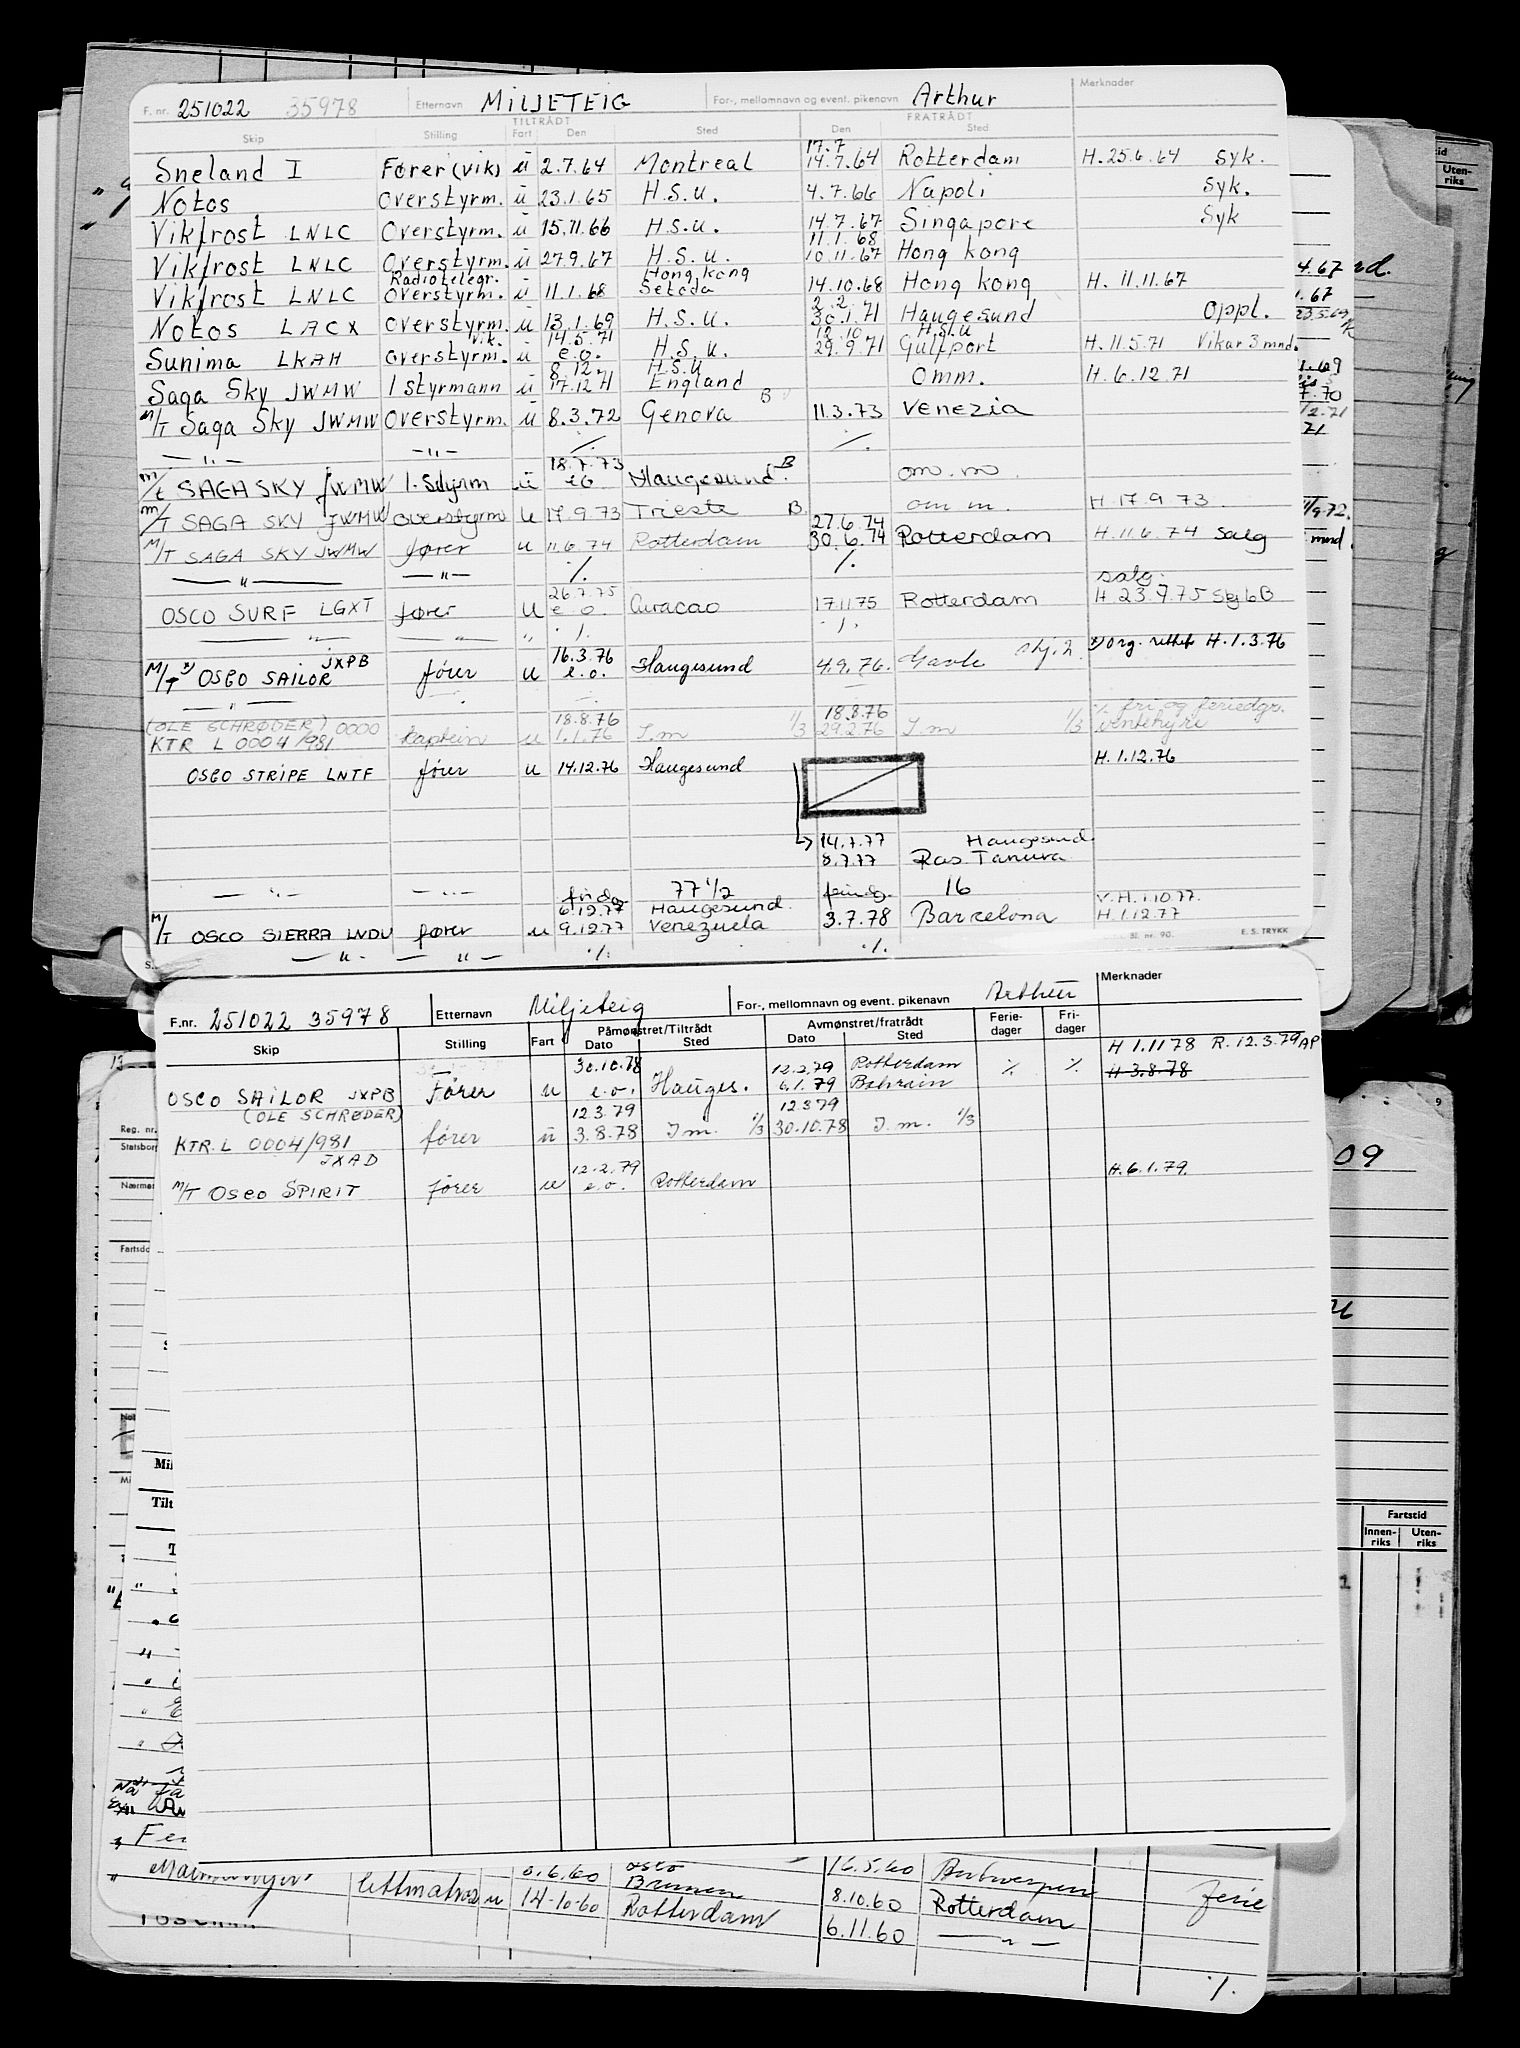 F. nr. 251022 35978 Etternavn MILJETEIG For-, mellomnavn og event. pikenavn Arthur Merknader
TILTRÅDT FRATRÅDT
Skip Stilling Fart Den Sted Den Sted
17.7
Sneland I Fører (vik) ü 2.7.64 Montreal 14.7.64 Rotterdam H. 25.6.64 Syk.
Notos Overstyrm. ü 23.1.65 H.S.U. 4.7.66 Napoli Syk.
Vikfrost LNLC Overstyrm. ü 15.11.66 H.S.U. 14.7.67 Singapore Syk
11.1.68
Vikfrost LNLC Overstyrm. ü 27.9.67 H.S.U. 10.11.67 Hong Kong
Radiotelegr. Hong Kong
Vikfrost LNLC Overstyrm. ü 11.1.68 Setoda 14.10.68 Hong Kong H. 11.11.67
2.2.71
Notos LACX Overstyrm. ü 13.1.69 H.S.U. 30.1.71 Haugesund Oppl.
vik. 14.5.71 12.10. H.S.U
Sunima LKAH Overstyrm. ü e.o. H.S.U. 29.9.71 Gulfport H. 11.5.71 Vikar 3 mnd.
8.12 H.S.U
Saga Sky JWMW I styrmann ü 17.12.71 England Omm. H. 6.12.71
B
M/T Saga Sky JWMW Overstyrm. ü 8.3.72 Genova 11.3.73 Venezia
— " — — " — ./. ./.
18.7.73
M/T SAGA SKY JWMW 1. Styrm ü eo Haugesund. B om.m
M/T SAGA SKY JWMW Overstyrm u 17.9.73 Trieste B om m. H. 17.9.73
27.6.74
M/T SAGA SKY JWMW fører u 11.6.74 Rotterdam 30.6.74 Rotterdam H. 11.6.74 Salg
— " — — " — ./. ./.
26.7.75 salg.
OSCO SURF LGXT fører U e.o. Curacao 17.11.75 Rotterdam H 23.7.75 Skj 6 B
— " — — " — " ./. ./.
JXPB 16.3.76
M/T OSCO SAILOR fører u e.o. Haugesund 4.9.76. Gavle skj. 2 org. rettet H. 1.3.76
— " —
(OLE SCHRØDER) 0000 18.8.76 18.8.76 ./. fri og feriedgr.
KTR L 0004/981 kaptein u 1.1.76 I.m 1/3 29.2.76 I m 1/3 ventehyre
OSCO STRIPE LNTF fører u 14.12.76 Haugesund H. 1.12.76
14.7.77 Haugesund
8.7.77 Ras Tanura
— " — — " — 77 1/2 16
6.12.77 Haugesund. V.H. 1.10.77.
M/T OSCO SIERRA LNDU fører u 9.12.77 Venezuela 3.7.78 Barcelona H. 1.12.77
— " — — " — ./. ./.
Bl. nr. 90. E. S. TRYKK
F.nr. 251022 35978 Etternavn Miljeteig For-, mellomnavn og event. pikenavn Arthur Merknader
Påmønstret/Tiltrådt Avmønstret/fratrådt Ferie- Fri-
Skip Stilling Fart Dato Sted Dato Sted dager dager
H 1.11 78 R. 12.3.79 AP
30.10.78 12.2.79 Rotterdam
OSCO SAILOR JXPB Fører u e.o. Hauges. 6.1.79 Bahrain ./. ./. H 3.8.78
(OLE SCHRØDER) 12 3.79 12 3 79
KTR. L 0004/981 fører u 3.8.78 I m. 1/3 30.10.78 I. m. 1/3
JXAD 12.2.79
M/T OSCO SPIRIT fører u e.o. Rotterdam H. 6.1.79.
Fartstid
Innen- riks Uten- riks
Reg. nr.
6.6.60 Oslo 16.5.60 Antwerpen
Bremen
lettmatros u 14-10-60 Rotterdam 8.10.60 Rotterdam Ferie
6.11.60 — " —
./.